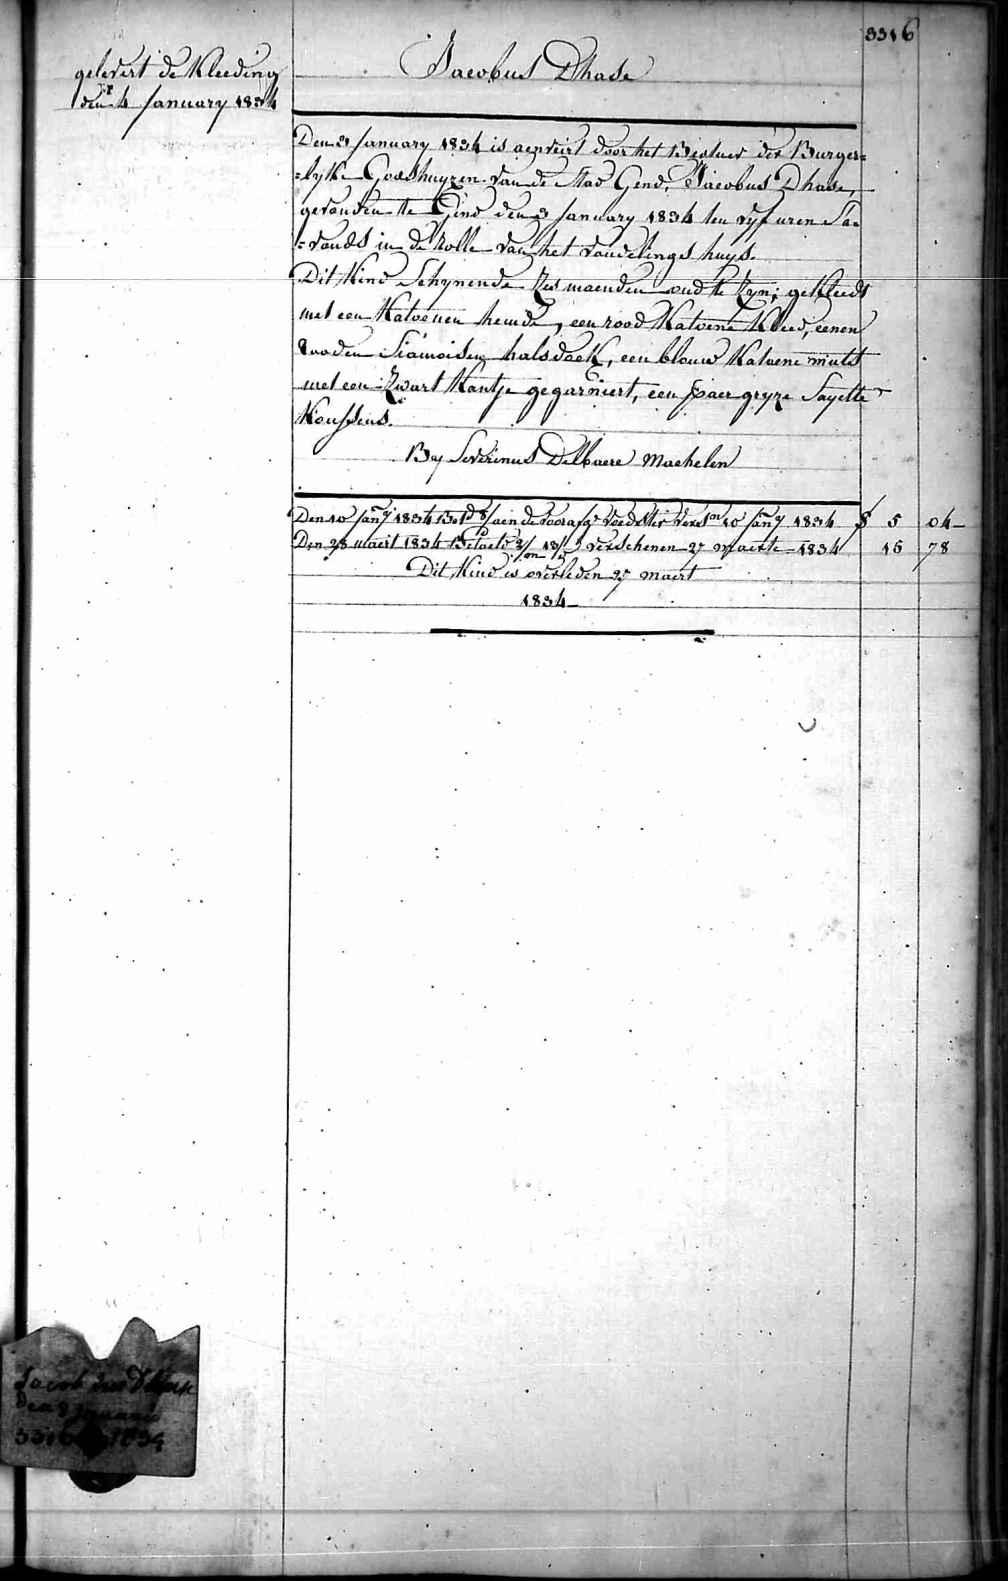 3316
gelevert de Kleeding
den 4 January 1834
Jacobus Dhase
Den 3 January 1834 is aenveirt door het Bestuer der Burger=
=lyke Godshuyzen van de Stad Gend, Jacobus Dhase,
gevonden te Gend den 3 January 1834 ten vyf uren Sa=
=vonds in de rolle van het vondelings huys.
Dit Kind Schynende Zes maenden oud te Zyn; gekleedt
met een Katoenen hemde, een rood Katoene Kleed, eenen
rooden Siamoisen halsdoek, een blauw Katoene muts
met een Zwart Kantje gegarniert, een paer gryze Sayette
Koussens.
By Severinus Delbaere Machelen
Den 10 Jany 1834 Betd aen de voorafge voedster versen 10 Jany 1834 5 04
Den 28 maert 1834 Betaelt verschenen 27 maerte 1834 15 78
Dit Kind is overleden 27 maert
1834
Jacobus Dhase
den 3 januarij
3316 1834